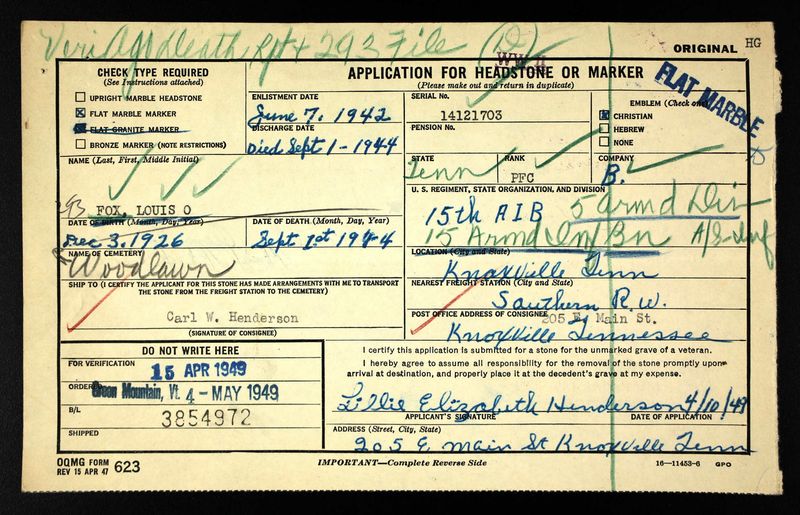 Veri Ago Death Rpt + 293 File (D)
WW II
ORIGINAL HG
CHECK TYPE REQUIRED
(See Instructions attached)
UPRIGHT MARBLE HEADSTONE
FLAT MARBLE MARKER
FLAT GRANITE MARKER
BRONZE MARKER (NOTE RESTRICTIONS)
ENLISTMENT DATE
June 7, 1942
DISCHARGE DATE
Died Sept 1-1944
APPLICATION FOR HEADSTONE OR MARKER
(Please make out and return in duplicate)
SERIAL No.
14121703
PENSION No.
EMBLEM (Check one)
CHRISTIAN
HEBREW
NONE
FLAT MARBLE
NAME (Last, First, Middle Initial)
293 FOX, LOUIS O
STATE
Tenn
RANK
PFC
COMPANY
B.
U. S. REGIMENT, STATE ORGANIZATION, AND DIVISION
15th AIB 5 Armd Div
15 Armd Inf Bn A/S-Inf
DATE OF BIRTH (Month, Day, Year)
Dec 3, 1926
DATE OF DEATH (Month, Day, Year)
Sept 1st 1944
NAME OF CEMETERY
Woodlawn
LOCATION (City and State)
Knoxville Tenn
SHIP TO (I CERTIFY THE APPLICANT FOR THIS STONE HAS MADE ARRANGEMENTS WITH ME TO TRANSPORT
THE STONE FROM THE FREIGHT STATION TO THE CEMETERY)
Carl W. Henderson
(SIGNATURE OF CONSIGNEE)
NEAREST FREIGHT STATION (City and State)
Southern R.W.
POST OFFICE ADDRESS OF CONSIGNEE
205 E Main St.
Knoxville Tennessee
DO NOT WRITE HERE
FOR VERIFICATION
15 APR 1949
ORDERED
Green Mountain, Vt. 4 - MAY 1949
B/L
3854972
SHIPPED
I certify this application is submitted for a stone for the unmarked grave of a veteran.
I hereby agree to assume all responsibility for the removal of the stone promptly upon
arrival at destination, and properly place it at the decedent's grave at my expense.
Lillie Elizabeth Henderson 4/10/49
APPLICANT'S SIGNATURE
DATE OF APPLICATION
ADDRESS (Street, City, State)
205 E Main St Knoxville Tenn
OQMG FORM
REV 15 APR 47 623
IMPORTANT—Complete Reverse Side
16—11453-6 GPO